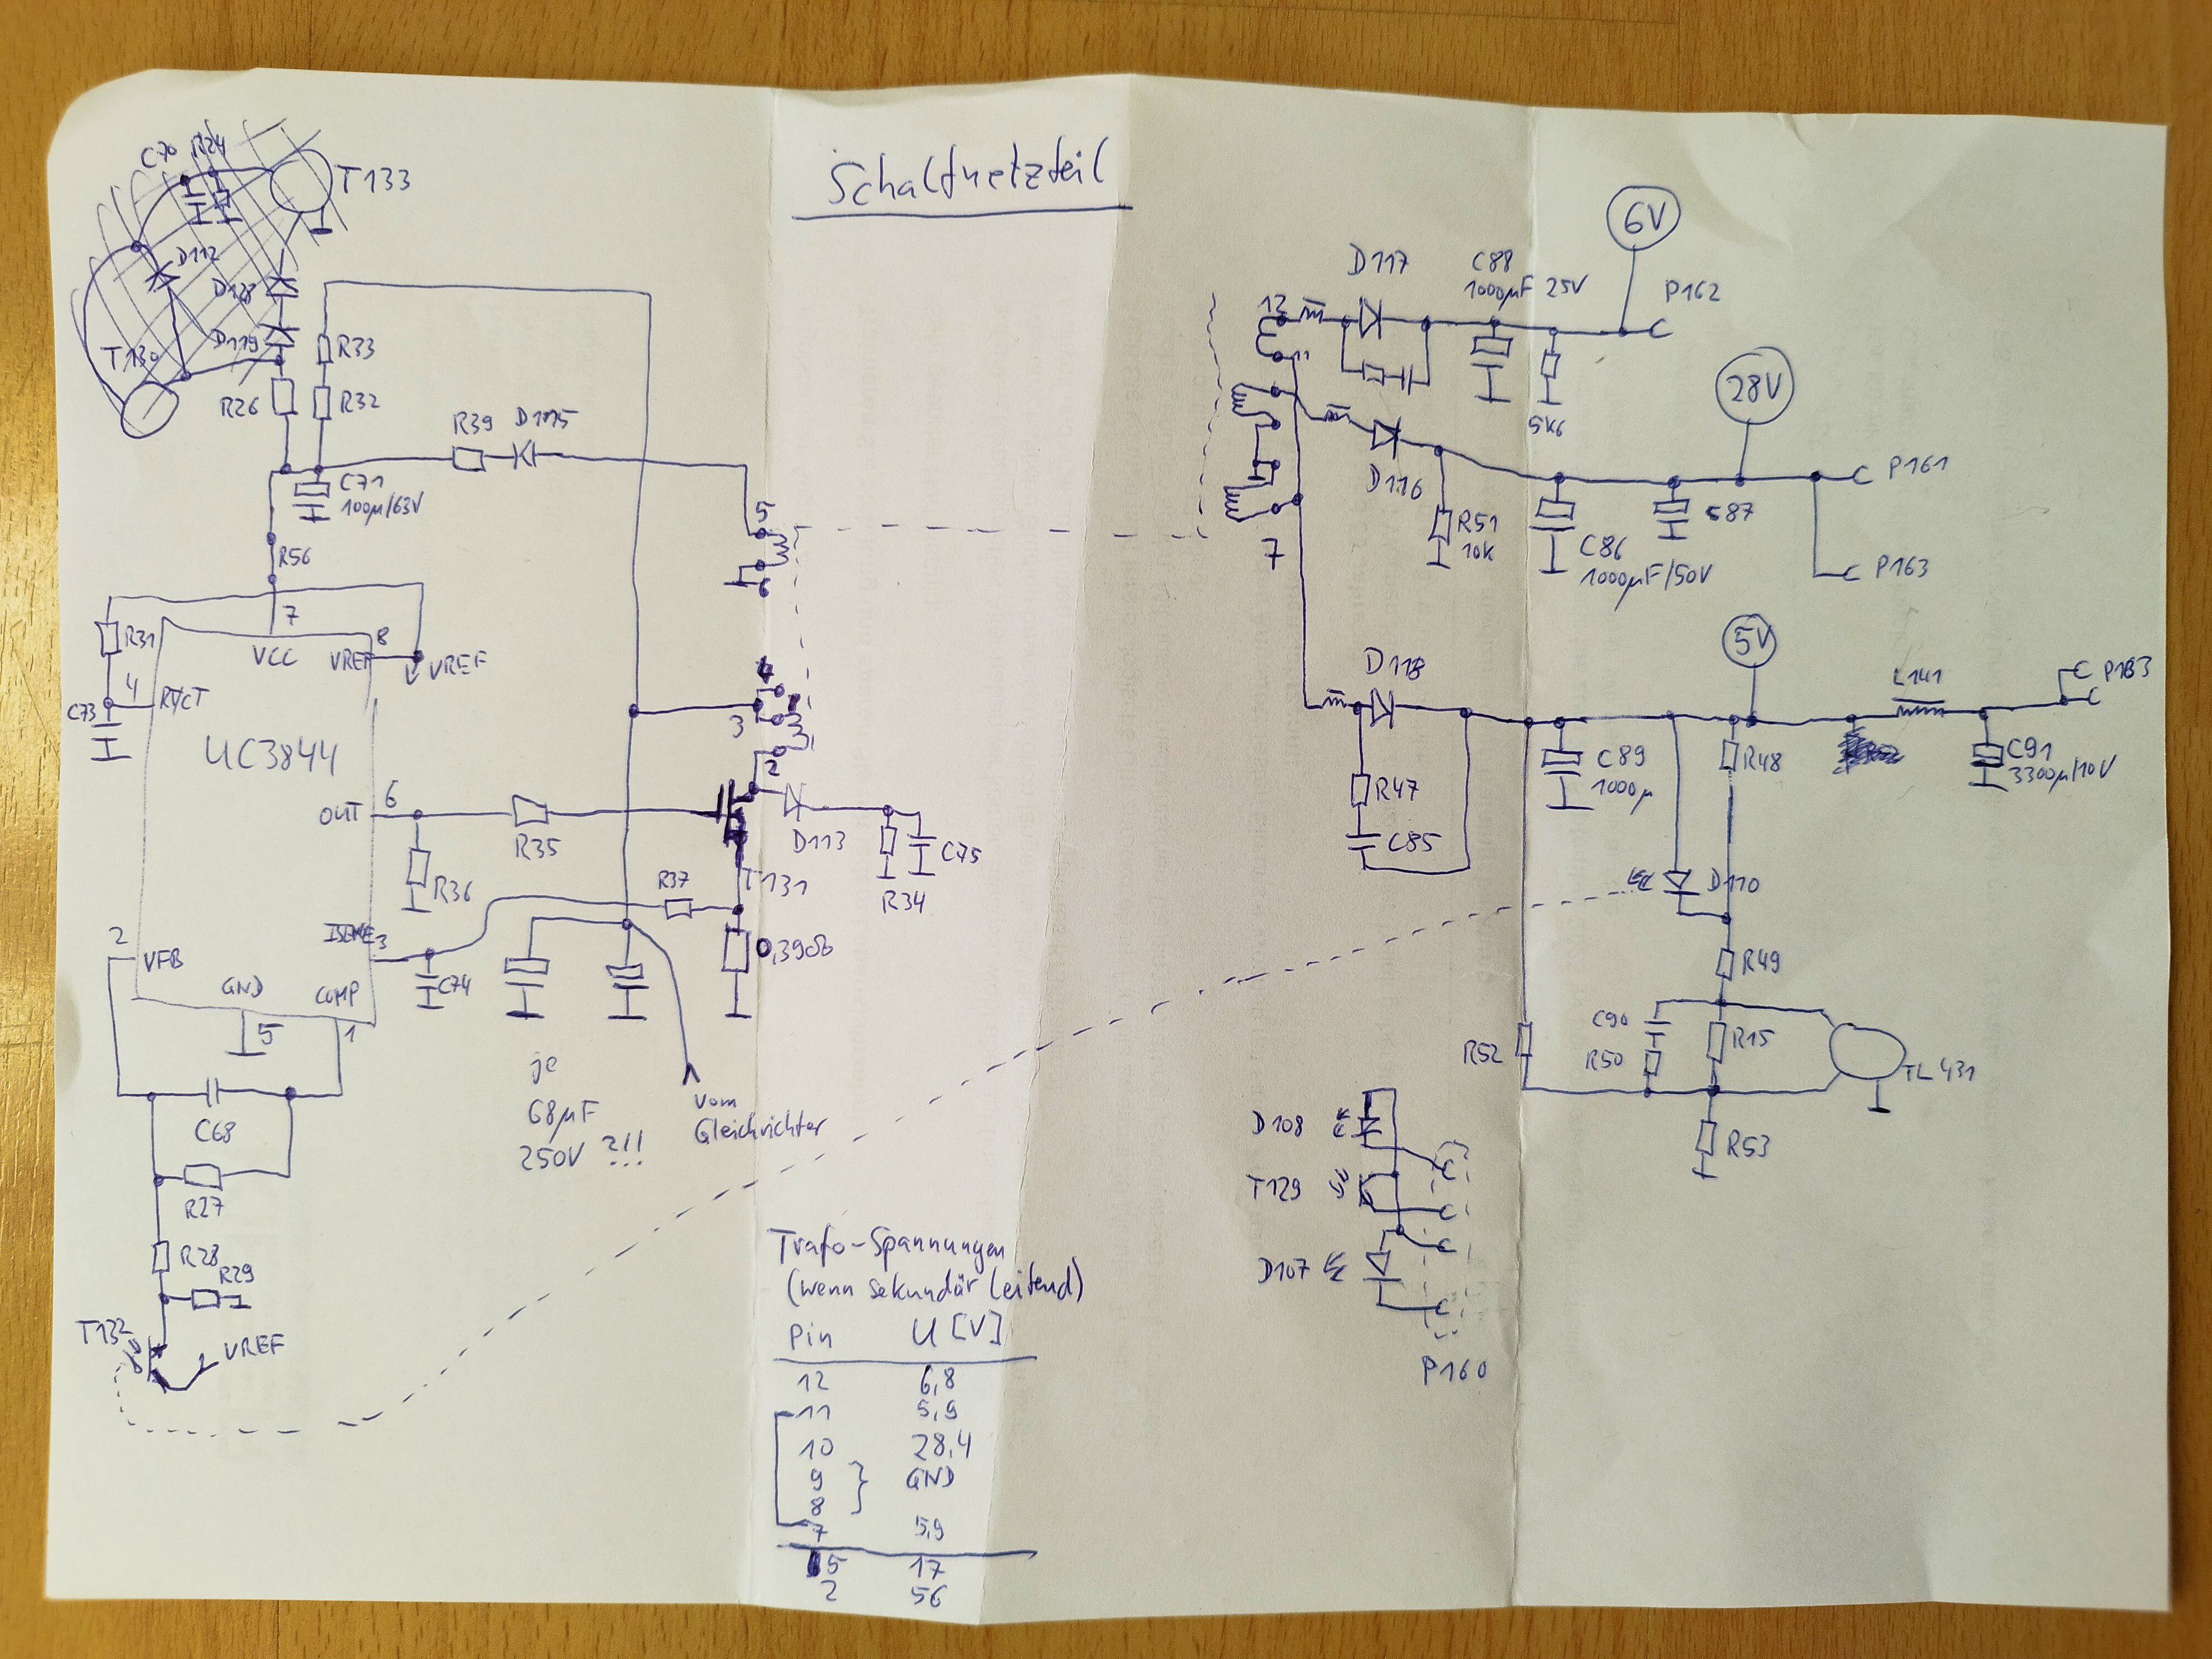 Schaltnetzteil
C70 R24
T133
D112
D128
D119
T130
R33
R26
R32
R39 D115
C71
100µ/63V
R56
5
6
7
VCC
8
VREF
VREF
R31
4
RT/CT
C73
UC3844
4
1
3
2
OUT
6
R35
R36
D113
C75
R34
T131
R37
ISENSE 3
0,39Ω
C74
2
VFB
GND
5
COMP
1
C68
R27
R28
R29
T132
VREF
je
68µF
250V ?!!
vom
Gleichrichter
12
11
7
D117
C88
1000µF 25V
5K6
6V
P162
D116
R51
10K
C86
1000µF/50V
C87
28V
P161
P163
D118
R47
C85
C89
1000µ
5V
R48
L141
C91
3300µ/10V
D110
R49
C90
R50
R15
R52
TL431
R53
D108
T129
D107
P160
Trafo-Spannungen
(wenn sekundär leitend)
Pin U [V]
12 6,8
11 5,9
10 28,4
9 } GND
8
7 5,9
5 17
2 56